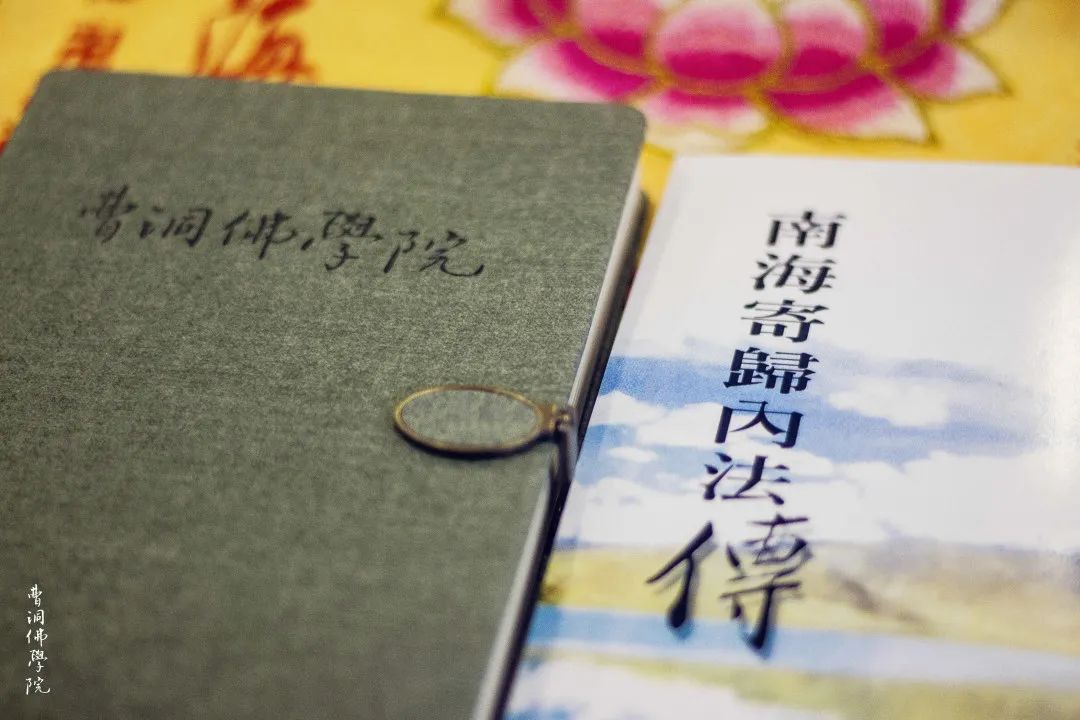 海
曹洞佛學院
南海寄歸內法傳
曹洞佛學院